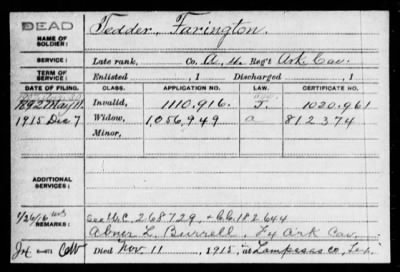 DEAD
NAME OF SOLDIER: Tedder, Farington.
SERVICE: Late rank, Co. A, 4 Reg't Ark. Cav.
TERM OF SERVICE: Enlisted , 1 Discharged , 1
DATE OF FILING. CLASS. APPLICATION NO. LAW. CERTIFICATE NO.
1892 May 11. Invalid, 1110.916. J. 1020.961
1915 Dec 7 Widow, 1,056,949 a 812374
Minor,
ADDITIONAL SERVICES:
1/26/16 See W.C. 268729, + C.C. 182644
REMARKS: Abner L. Burrell, Ark Cav.
Died Nov. 11, 1915, at Lampasas Co., Tex.